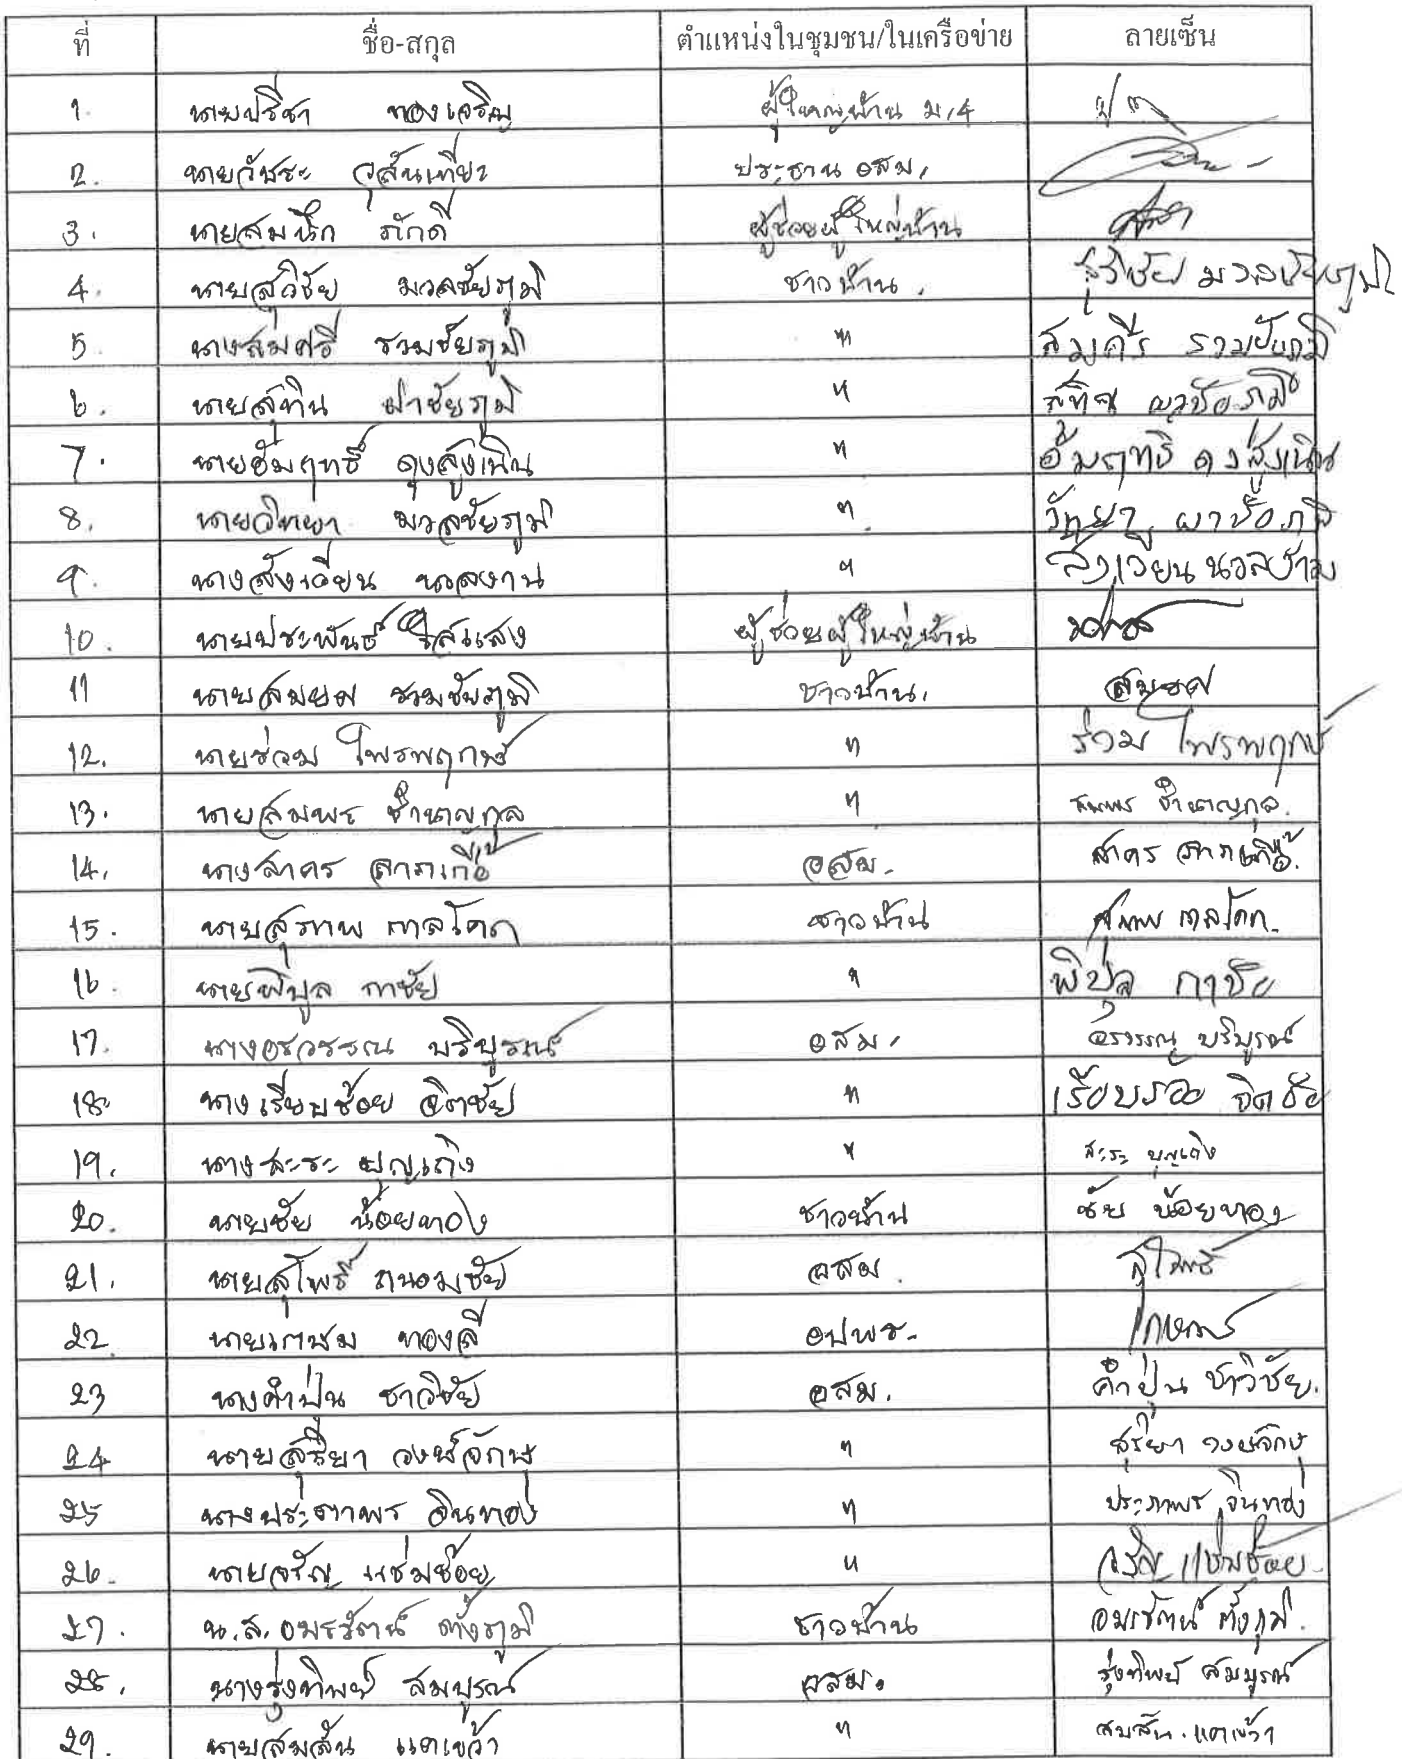 ที่ ชื่อ-สกุล ตำแหน่งในชุมชน/ในเครือข่าย ลายเซ็น
1. นายปรีชา ทองเจริญ ผู้ใหญ่บ้าน ม.4
2. นายวัชระ วุสันเทียะ ประธาน อสม.
3. นายสมนึก ภักดี ผู้ช่วยผู้ใหญ่บ้าน
4. นายสุวิชัย มวลชัยภูมิ ชาวบ้าน. สุวิชัย มวลชัยภูมิ
5 นางสมศรี รวมชัยภูมิ " สมศรี รวมชัยภูมิ
6. นายสุทิน ฝาชัยภูมิ " สุทิน
7. นายอัมฤทธิ์ ดุงสูงเนิน " อัมฤทธิ์ ดงสูงเนิน
8. นายวิทยา มวลชัยภูมิ " วิทยา
9. นางสังเวียน นวลงาม " สังเวียน นวลงาม
10. นายประพันธ์ ใสแสง ผู้ช่วยผู้ใหญ่บ้าน
11 นายสมยศ รวมชัยภูมิ ชาวบ้าน. สมยศ
12. นายร่วม ไพรพฤกษ์ " ร่วม ไพรพฤกษ์
13. นายสมพร ชำนาญกุล " สมพร ชำนาญกุล.
14. นางสาคร ลาภเกื้อ อสม. สาคร ลาภเกื้อ.
15. นายสุภาพ กาลโคก ชาวบ้าน สุภาพ กาลโคก.
16. นายพิบูล กาชัย " พิบูล กาชัย
17. นางอรวรรณ บริบูรณ์ อสม. อรวรรณ บริบูรณ์
18. นางเรียบร้อย จิตชัย " เรียบร้อย จิตชัย
19. นางสะระ บุญเถิง " สะระ บุญเถิง
20. นายชัย น้อยทอง ชาวบ้าน ชัย น้อยทอง
21. นายสุโพธิ์ ถนอมชัย อสม. สุโพธิ์
22. นายเกษม ทองลี อปพร. เกษม
23 นางคำปุ่น ชาวิชัย อสม. คำปุ่น ชาวิชัย.
24 นายสุริยา วงษ์จักษุ " สุริยา วงษ์จักษุ
25 นางประภาพร จินทอง " ประภาพร จินทอง
26. นายจรัญ แช่มช้อย " จรัญ แช่มช้อย.
27. น.ส.อมรรัตน์ ตั้งภูมิ ชาวบ้าน อมรรัตน์ ตั้งภูมิ.
28. นางรุ่งทิพย์ สมบูรณ์ อสม. รุ่งทิพย์ สมบูรณ์
29. นายสมสัน แคเขว้า " สมสัน แคเขว้า